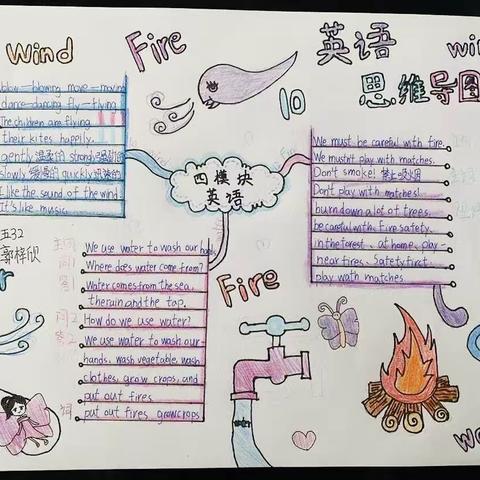 Wind
Fire
英语
win
思维导图
10
blow—blowing move—moving
dance—dancing fly—flying
The children are flying
their kites happily.
gently 温柔的 strongly 强劲的
slowly 缓慢的 quickly 迅速的
I like the sound of the wind.
It's like music.
五32
四模块
英语
We must be careful with fire.
We mustn't play with matches.
Don't smoke! 禁止吸烟
Don't play with matches!
burn down a lot of trees.
be careful with Fire safety.
in the forest、at home、play
near fires. Safety first
play with matches
We use water to wash our hands
Where does water come from?
Water comes from the sea.
the rain and the tap.
问2 How do we use water?
答2 We use water to wash our
hands, wash vegetable, wash
clothes, grow crops, and
put out fires
词 put out fires grow crops
Fire
r
wa